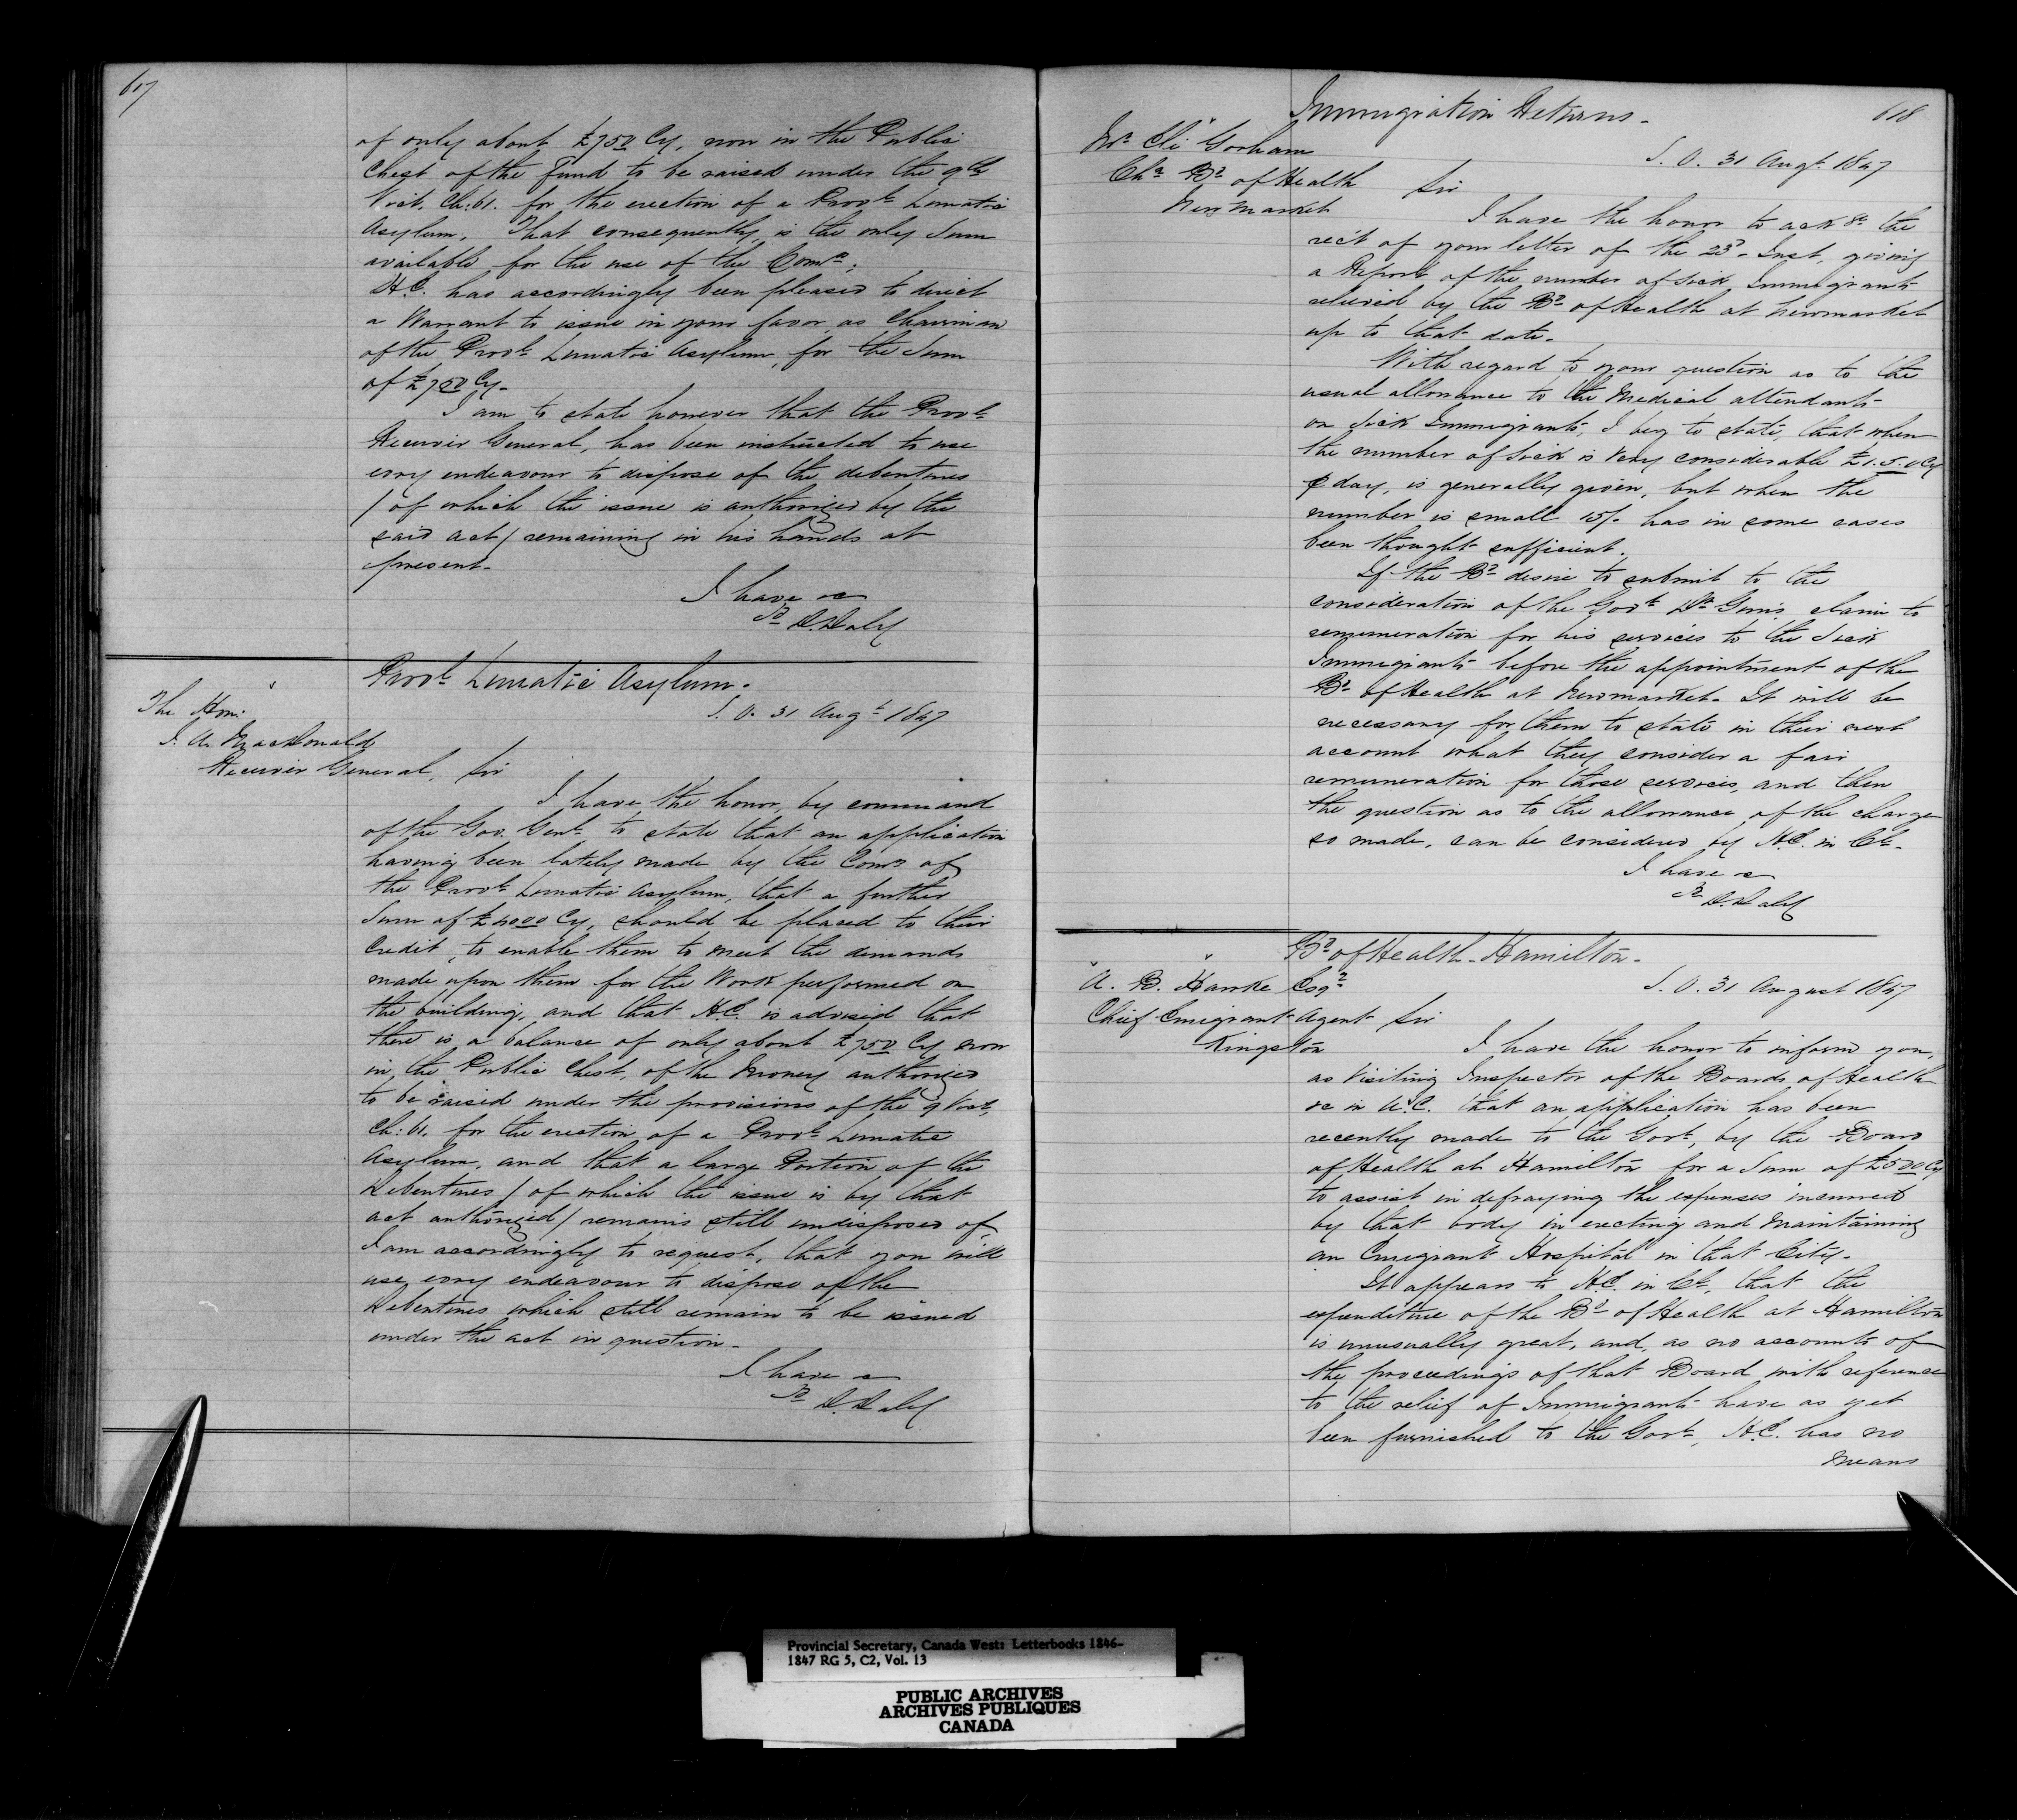 617
of only about £750 Cy, now in the Public
Chest of the Fund to be raised under the 9th
Vict. Ch: 61. for the erection of a Provl. Lunatic
Asylum. That consequently, is the only Sum
available for the use of the Comrs.;
H.E. has accordingly been pleased to direct
a Warrant to issue in your favor as Chairman
of the Provl. Lunatic Asylum, for the Sum
of £750 Cy.
I am to state however that the Provl.
Receiver General, has been instructed to use
evry endeavour to dispose of the debentures
/ of which the issue is authorized by the
said act / remaining in his hands at
present.
I have &c
D. Daly
Provl. Lunatic Asylum.
The Hon.
S. O. 31 Augt. 1847
J. A. MacDonald
Receiver General, Sir
I have the honor, by command
of the Gov. Genl. to state that an application
having been lately made by the Comrs of
the Provl. Lunatic Asylum, that a further
Sum of £4000 Cy, should be placed to their
Credit, to enable them to meet the demands
made upon them for the Work performed on
the building, and that H.E. is advised that
there is a balance of only about £750 Cy now
in the Public Chest, of the Money authorized
to be raised under the provisions of the 9 Vict,
Ch: 61. for the erection of a Provl. Lunatic
Asylum, and that a large Portion of the
Debentures / of which the issue is by that
act authorized / remains still undisposed of,
I am accordingly to request, that you will
use evry endeavour to dispose of the
Debentures which still remain to be issued
under the act in question.
I have &c
D. Daly
618
Immigration Returns.
Mr. Eli Gorham
S. O. 31 Augt. 1847
Chn. Bd. of Health Sir
New Market
I have the honor to ackge. the
rec't of your letter of the 23d. Inst, giving
a Report of the number of sick Immigrants
relieved by the Bd. of Health at Newmarket
up to that date.
With regard to your question as to the
usual allowance to the Medical attendants
on Sick Immigrants, I beg to state, that when
the number of sick is very considerable £1.5.0 Cy
p day, is generally given, but when the
number is small 15/- has in some cases
been thought sufficient.
If the Bd. desire to submit to the
consideration of the Govt. Dr. claim to
remuneration for his services to the Sick
Immigrants before the appointment of the
Bd. of Health at Newmarket. It will be
necessary for them to state in their next
account what they consider a fair
remuneration for those services, and then
the question as to the allowance of the charge
so made, can be considered by H.E. in Cl.
I have &c
D. Daly
Bd. of Health - Hamilton.
A. B. Hawke Esqr.
S. O. 31 August 1847
Chief Emigrant Agent Sir
Kingston
I have the honor to inform you,
as Visiting Inspector of the Boards of Health
&c in U.C. that an application has been
recently made to the Govt., by the Board
of Health at Hamilton for a Sum of £500 Cy
to assist in defraying the expenses incurred
by that body in erecting and maintaining
an Emigrant Hospital in that City.
It appears to H.E. in Cl., that the
expenditure of the Bd. of Health at Hamilton
is unusually great, and, as no accounts of
the proceedings of that Board with reference
to the relief of Immigrants have as yet
been furnished to the Govt., H.E. has no
means
Provincial Secretary, Canada West: Letterbooks 1846-
1847 RG 5, C2, Vol. 13
PUBLIC ARCHIVES
ARCHIVES PUBLIQUES
CANADA